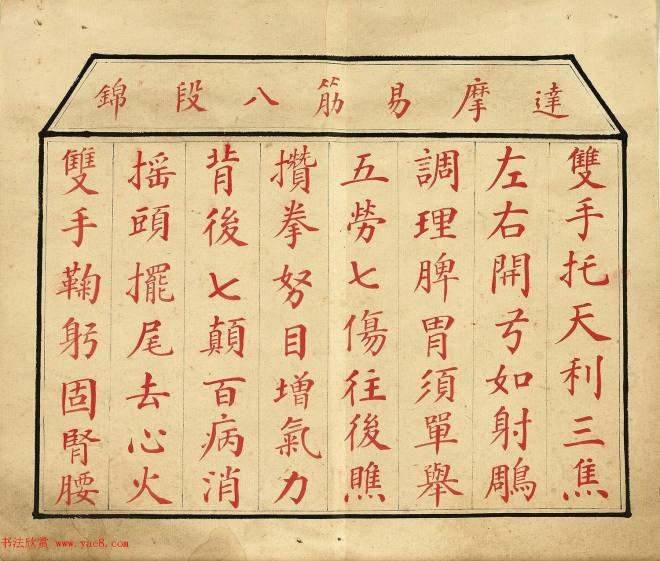 達摩易筋八段錦
雙手托天利三焦
左右開弓如射鵰
調理脾胃須單舉
五勞七傷往後瞧
攢拳努目增氣力
背後七顛百病消
摇頭擺尾去心火
雙手鞠躬固腎腰
书法欣赏 www.yac8.com